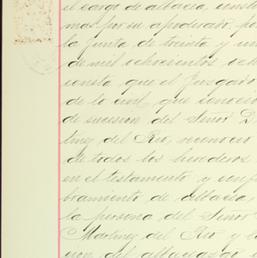 el cargo de albacea, const
mas por su apoderado, po
la junta de treinta y un
de mil ochocientos och
consta que el Juzgado
de lo civil que conoció
de sucesion del Señor D
tinez del Rio, reconoció
de todos los herederos
en el testamento y conf
bramiento de albacea
la persona del Señor
Martinez del Rio y l
cion del albaceazgo